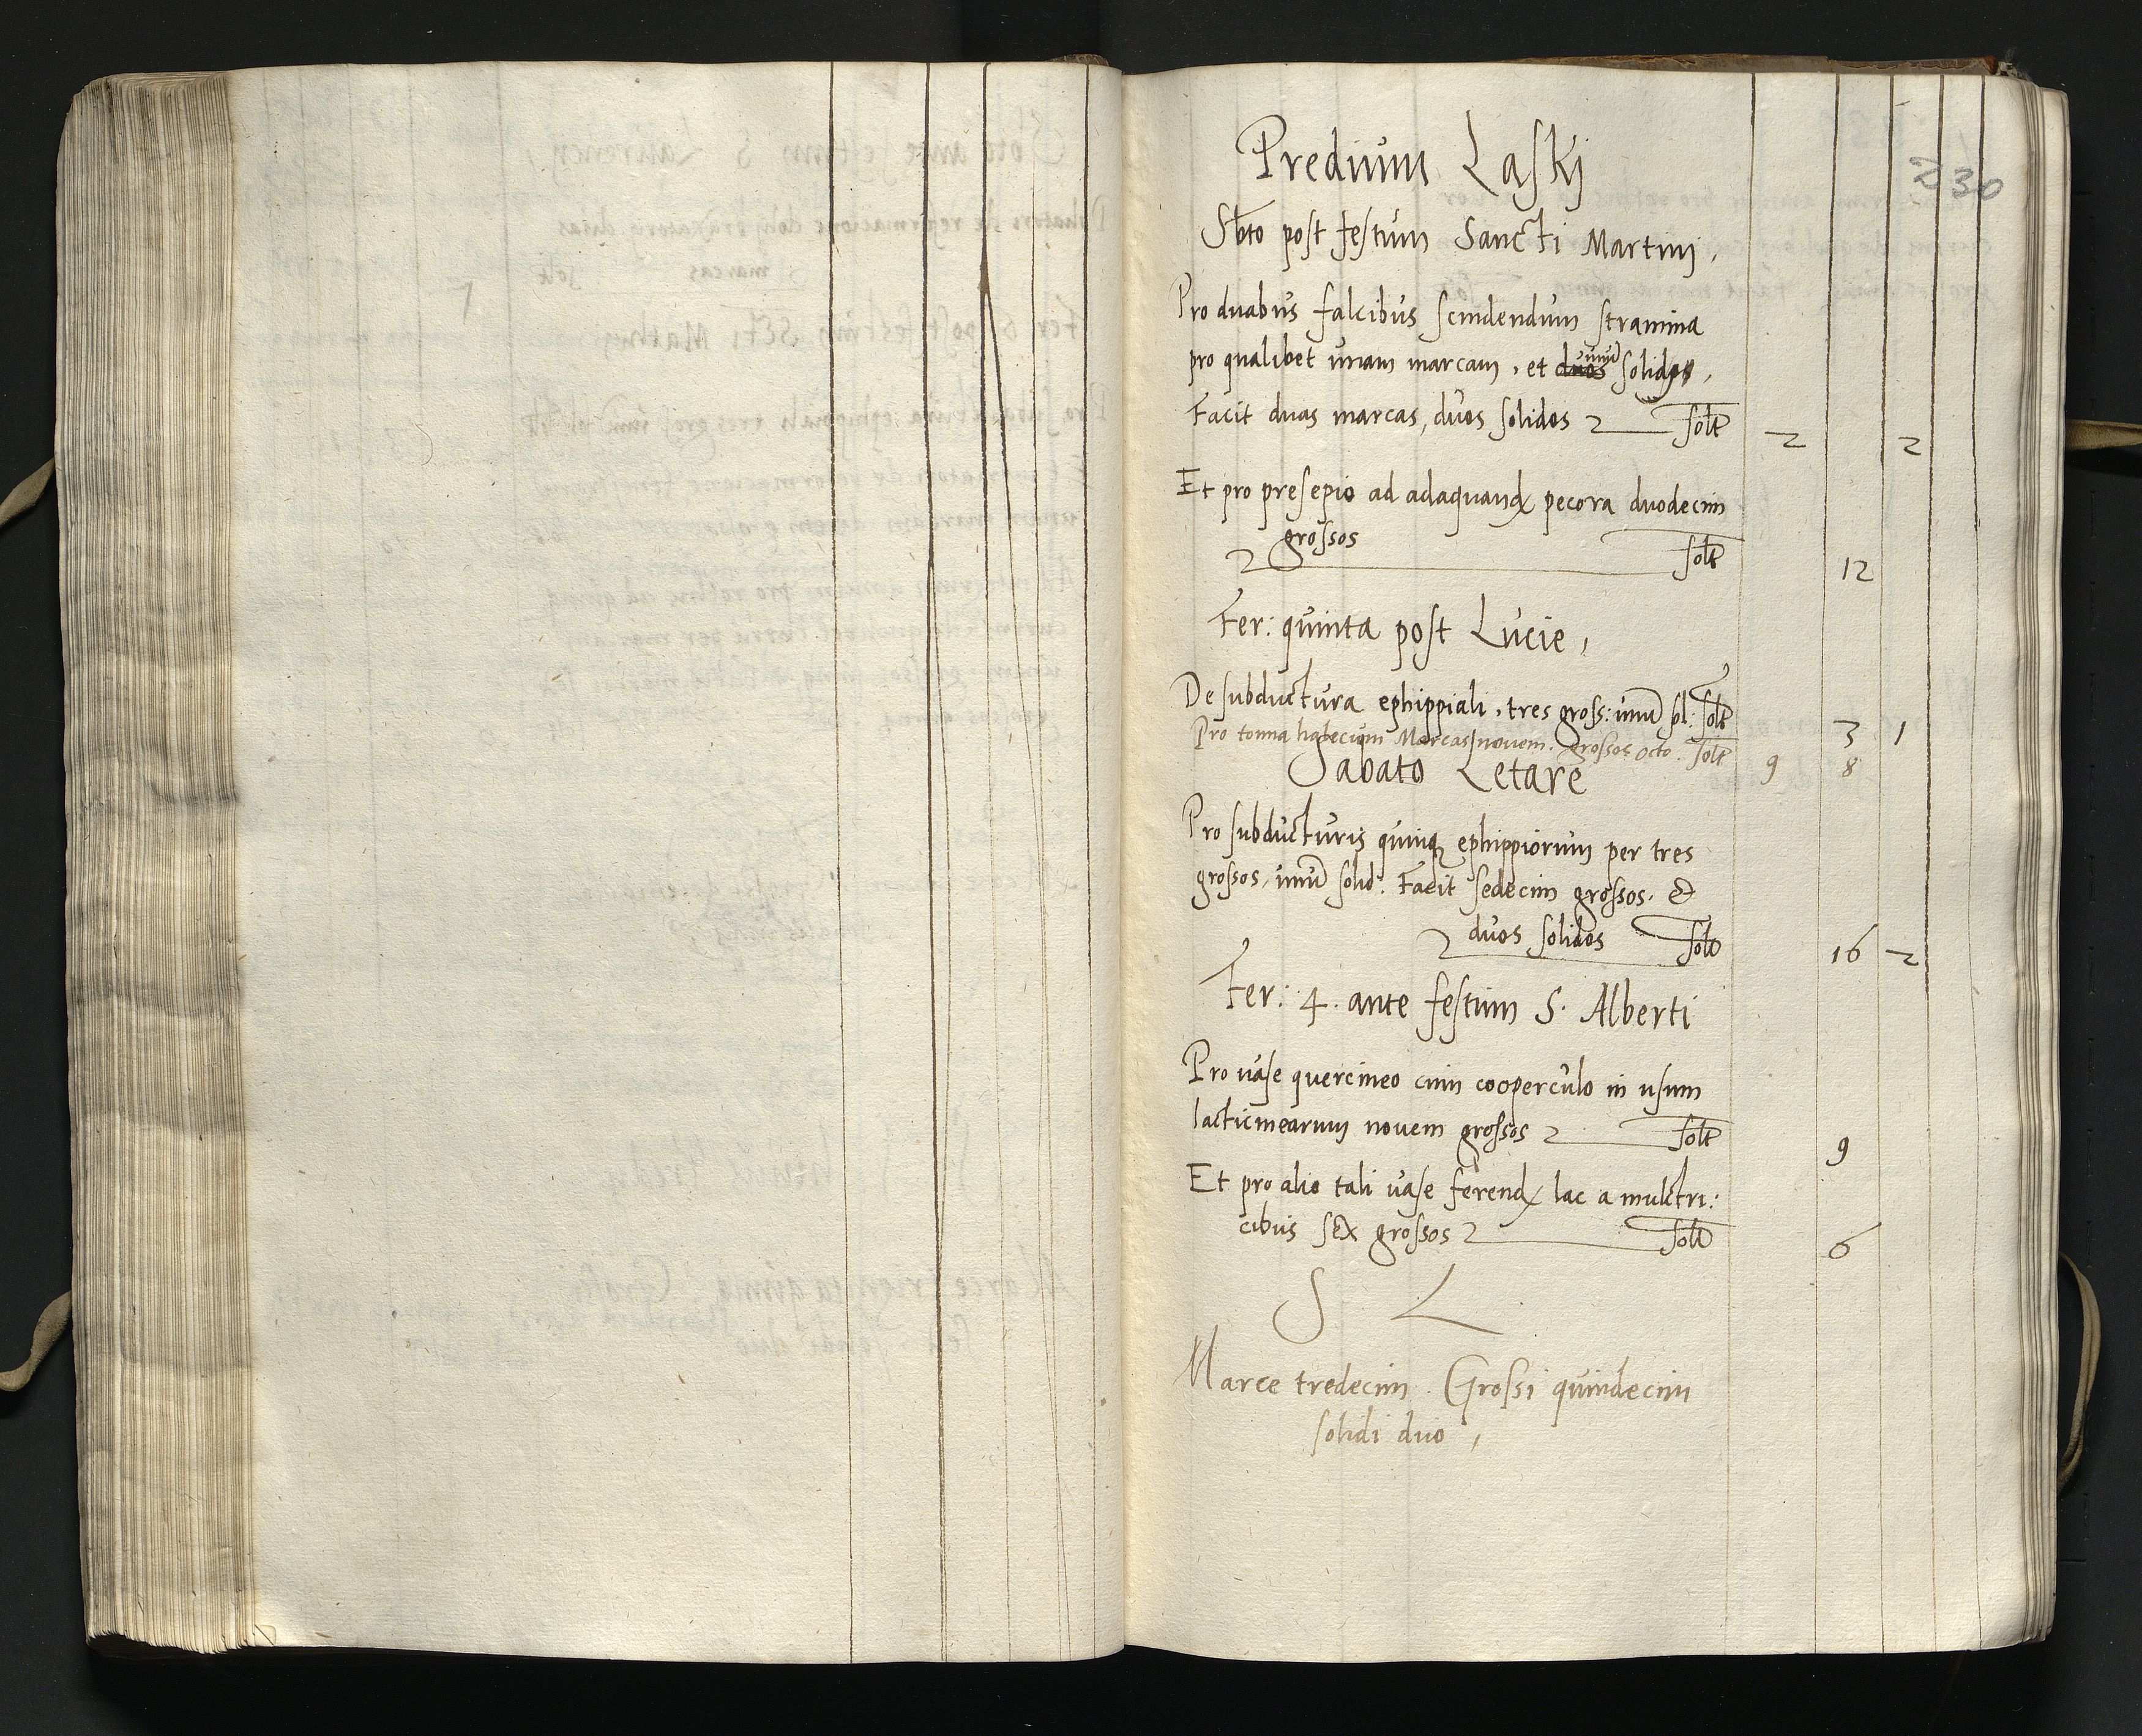 230
Predium Laskj
Sbto post festum Sancti Martinj,
Pro duabus falcibus scindendum stramina
pro qualibet unam marcam, et duos unū solidos,
Facit duas marcas, duos solidos solt 2 2
Et pro presepio ad adaquand pecora duodecim
grossos solt 12
Fer: quinta post Lucie,
De subductura ephippiali, tres gross: unū sol: solt 3 1
Pro tonna halecum Marcas novem. grossos octo. solt 9 8
Sabato Letare
Pro subducturis quinq ephippiorum per tres
grossos, unū solid: Facit sedecim grossos, &
duos solidos solt 16 2
Fer: 4. ante festum S. Alberti
Pro vase quercineo cum cooperculo in usum
lacticinearum novem grossos solt 9
Et pro alio tali vase ferend lac a mulctri:
cibus sex grossos solt 6
S L
Marce tredecim. Grossi quindecim
solidi duo,